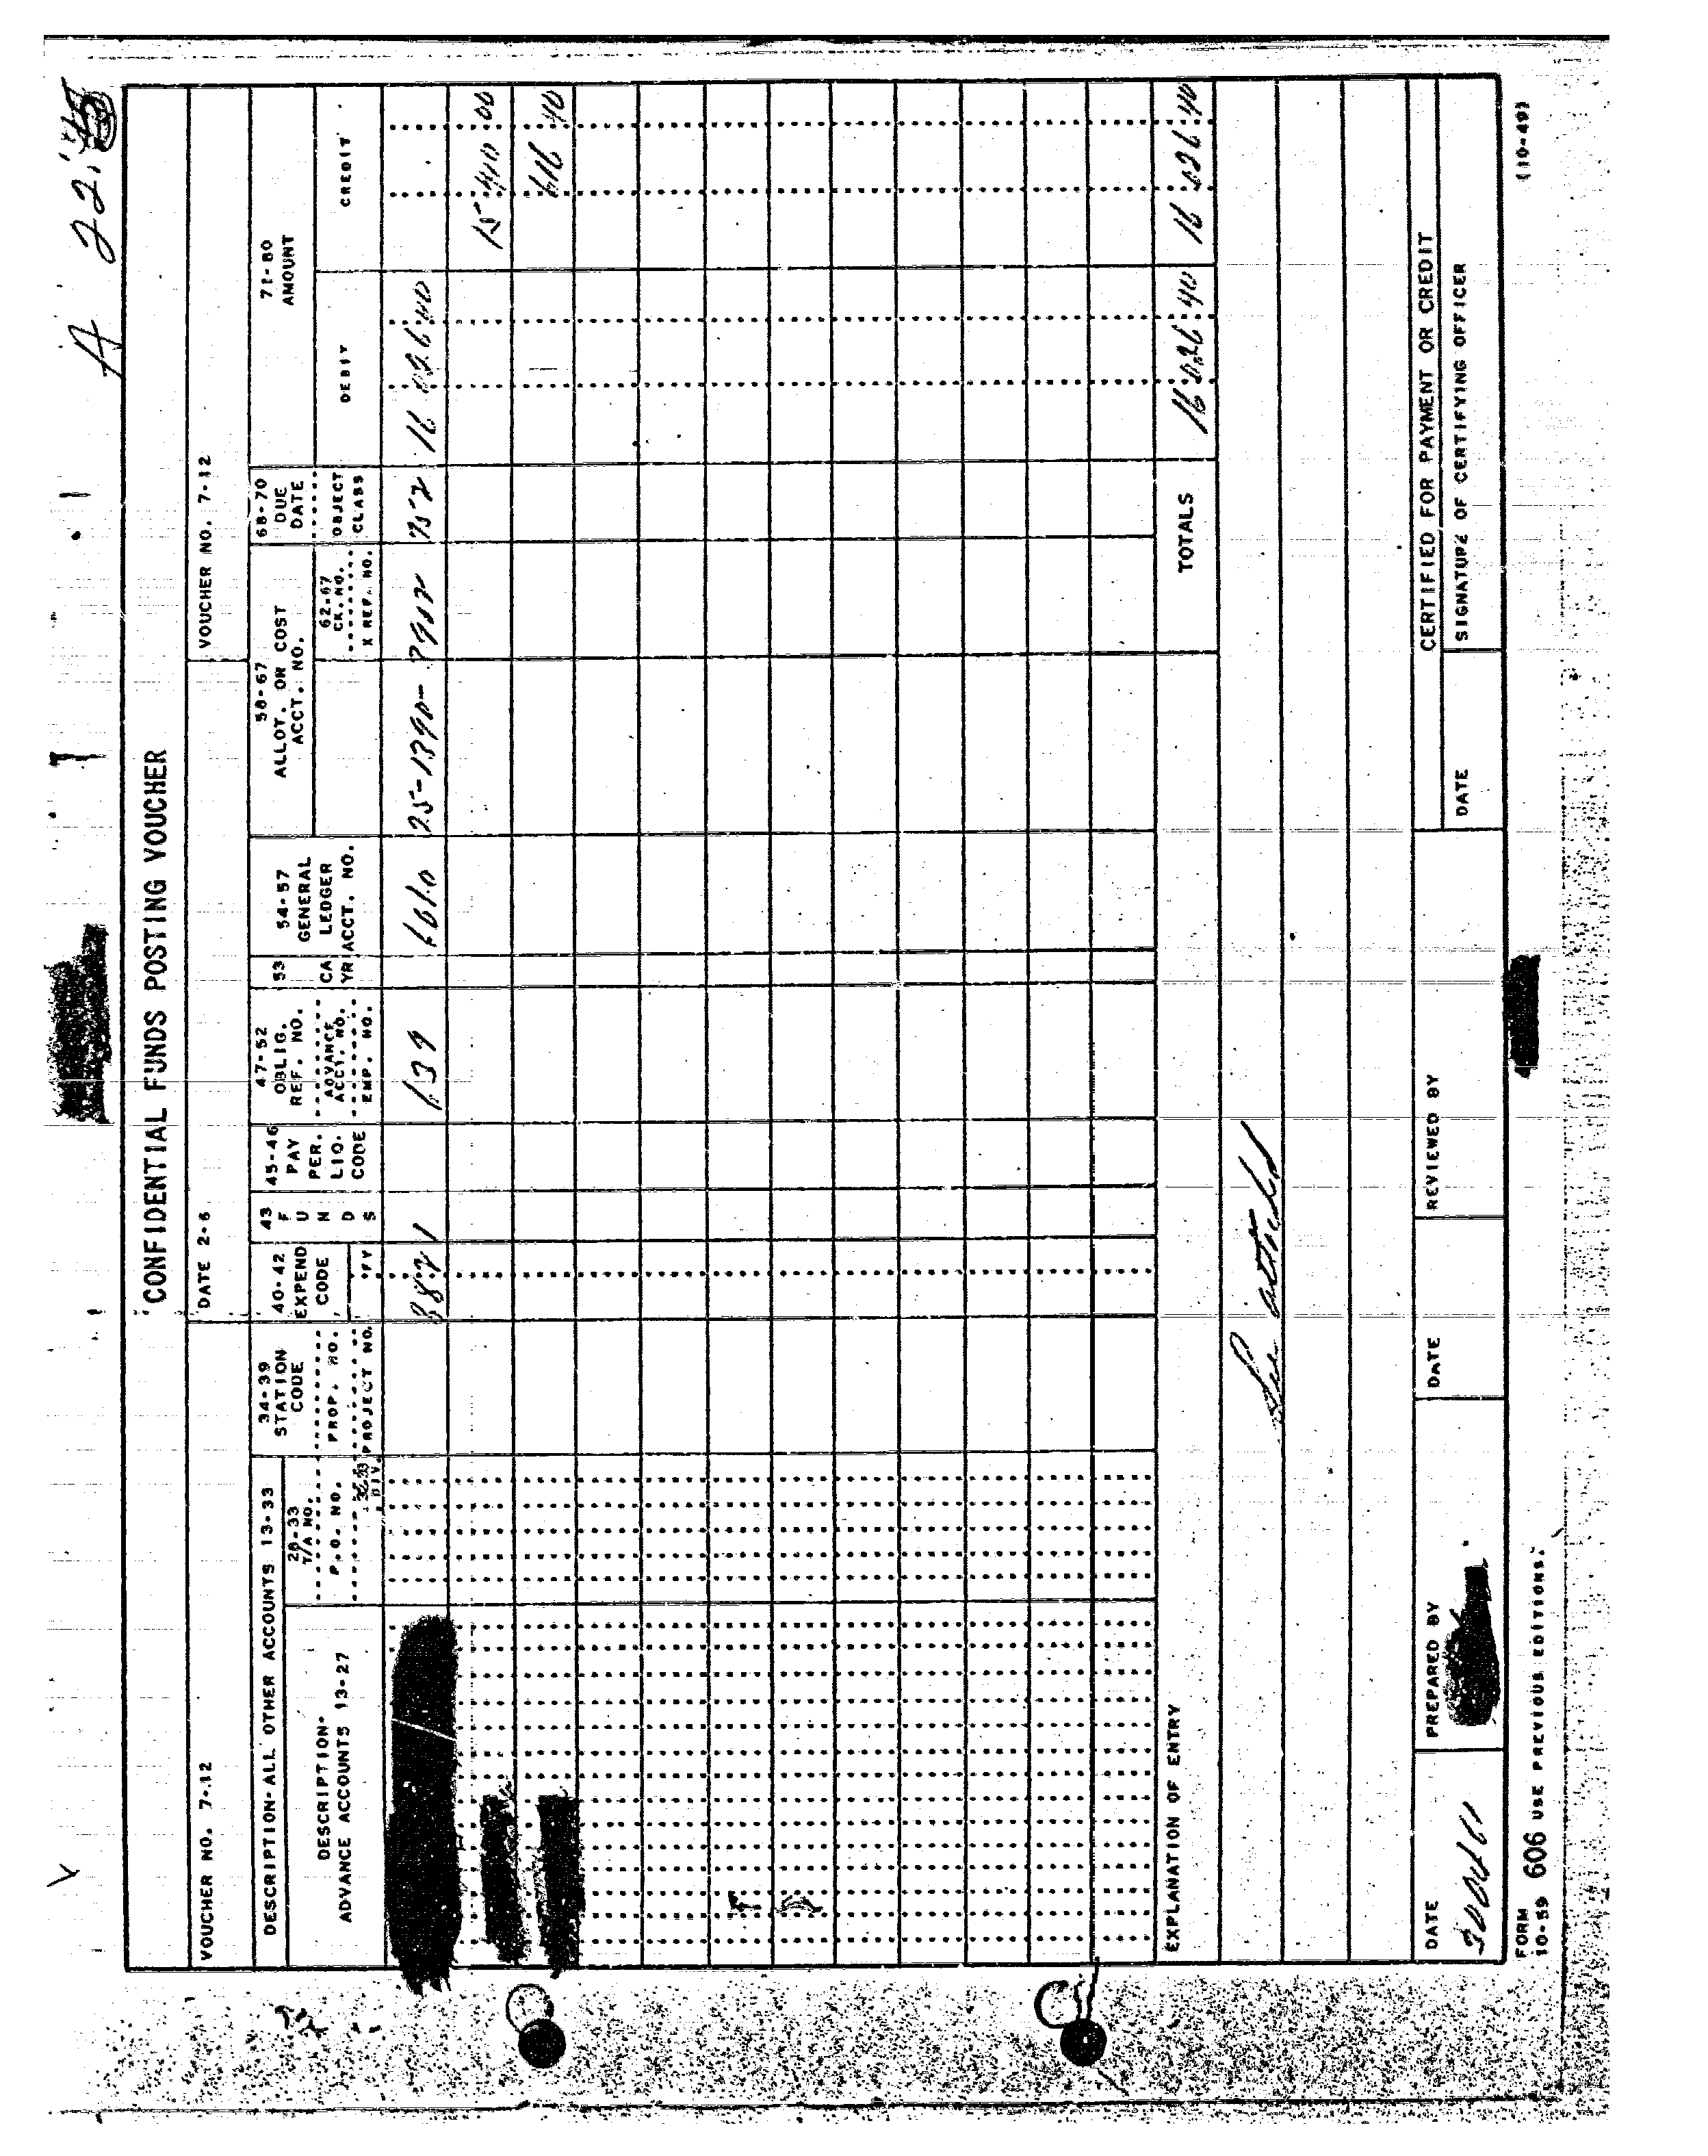 A 22.
CONFIDENTIAL FUNDS POSTING VOUCHER
VOUCHER NO. 7-12 DATE 2-6 VOUCHER NO. 7-12
DESCRIPTION-ALL OTHER ACCOUNTS 13-33
DESCRIPTION-
ADVANCE ACCOUNTS 13-27
28-33
T/A NO.
P.O. NO.
DIV.
34-39
STATION
CODE
PROP. NO.
PROJECT NO.
40-42
EXPEND
CODE
FY
43
F
U
N
D
S
45-46
PAY
PER.
LIQ.
CODE
47-52
OBLIG.
REF. NO.
ADVANCE
ACCT. NO.
EMP. NO.
53
CA
YR
54-57
GENERAL
LEDGER
ACCT. NO.
58-67
ALLOT. OR COST
ACCT. NO.
62-67
CK. NO.
X REF. NO.
68-70
DUE
DATE
OBJECT
CLASS
71-80
AMOUNT
DEBIT
CREDIT
139 25-1390- 252 16 026 40
15 410 00
616 40
TOTALS 16 026 40 16 026 40
EXPLANATION OF ENTRY
See attached
DATE
PREPARED BY
DATE
REVIEWED BY
CERTIFIED FOR PAYMENT OR CREDIT
DATE
SIGNATURE OF CERTIFYING OFFICER
FORM
10-59 606 USE PREVIOUS EDITIONS.
(10-49)